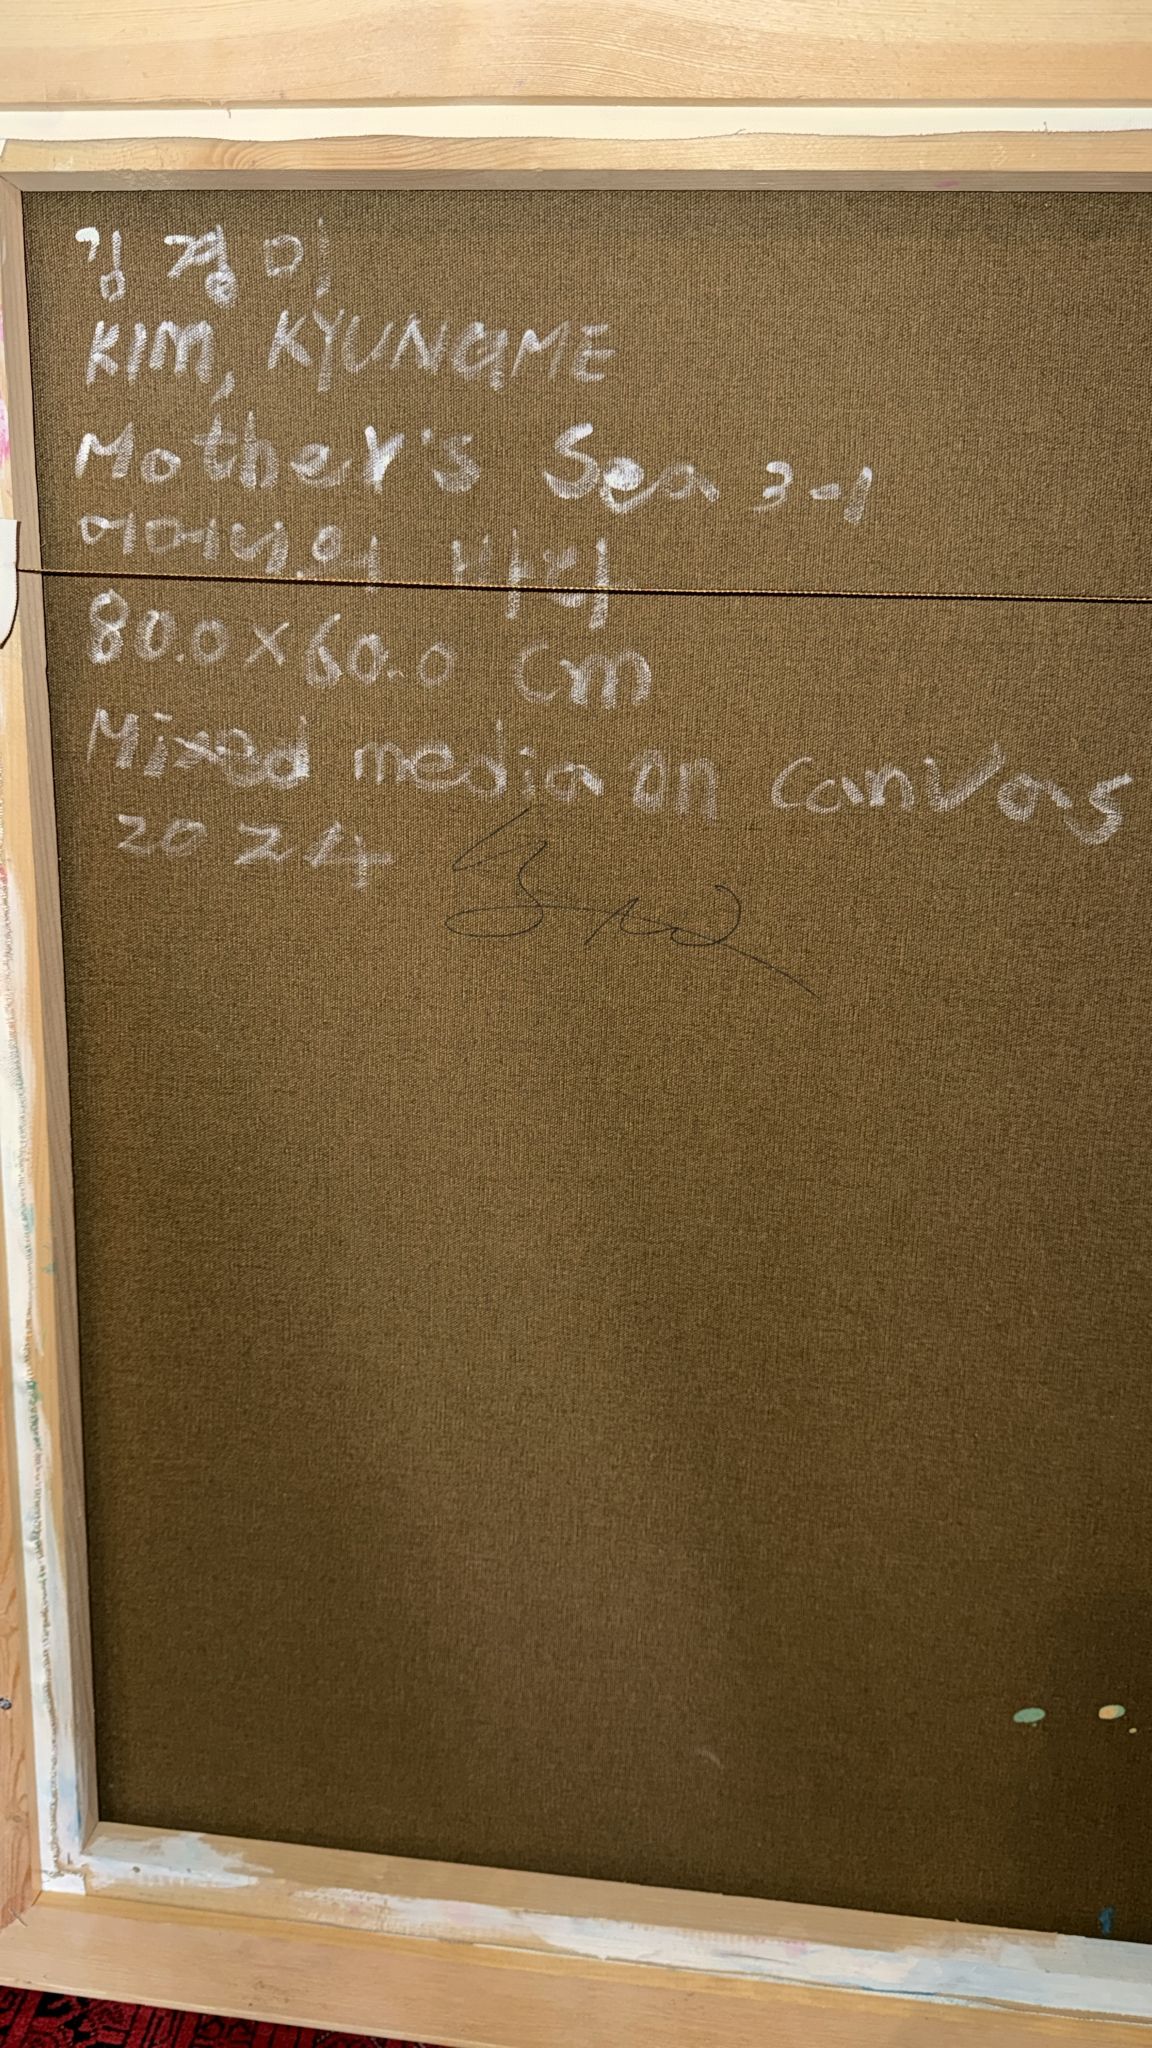 김경미
KIM, KYUNGME
Mother's Sea 3-1
어머니의 바다
80.0×60.0 cm
Mixed media on canvas
2024